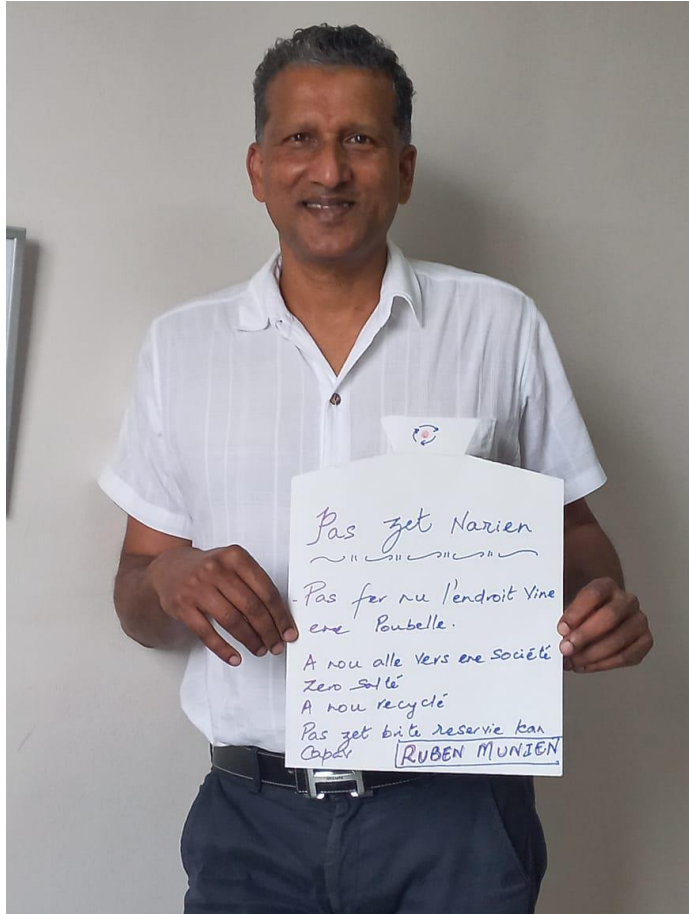 Pas zet Narien
- Pas fer nu l'endroit vine
ene Poubelle.
A nou alle vers ene société
Zero Salté
A nou recyclé
Pas zet brite reservie kan
Capav
RUBEN MUNIEN